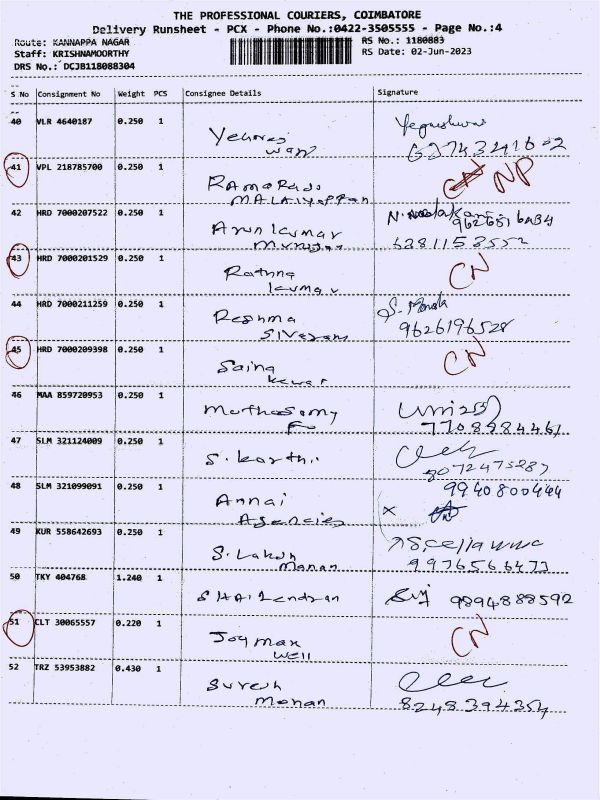 THE PROFESSIONAL COURIERS, COIMBATORE
Delivery Runsheet - PCX - Phone No.:0422-3505555 - Page No.:4
Route: KANNAPPA NAGAR
RS No.: 1180883
Staff: KRISHNAMOORTHY
RS Date: 02-Jun-2023
DRS No.: DCJB118088304
S No Consignment No Weight PCS Consignee Details Signature
40 VLR 4640187 0.250 1
41 VPL 218785700 0.250 1
Ramarads
MALAiyappan
CN NP
42 HRD 7000207522 0.250 1
Arun kumar
murugan
43 HRD 7000201529 0.250 1
Rathna
kumar
CN
44 HRD 7000211259 0.250 1
Reshma
9626196528
45 HRD 7000209398 0.250 1
Saina
CN
46 MAA 859720953 0.250 1
47 SLM 321124009 0.250 1
S. karthi
8072475287
48 SLM 321099091 0.250 1
9940800444
Annai
Agencies
X
49 KUR 558642693 0.250 1
S. Lakshmanan
9976566473
50 TKY 404768 1.240 1
SHAilendran
9894888592
51 CLT 30065557 0.220 1
Joy max
well
CN
52 TRZ 53953882 0.430 1
Suresh
mohan
8248394354